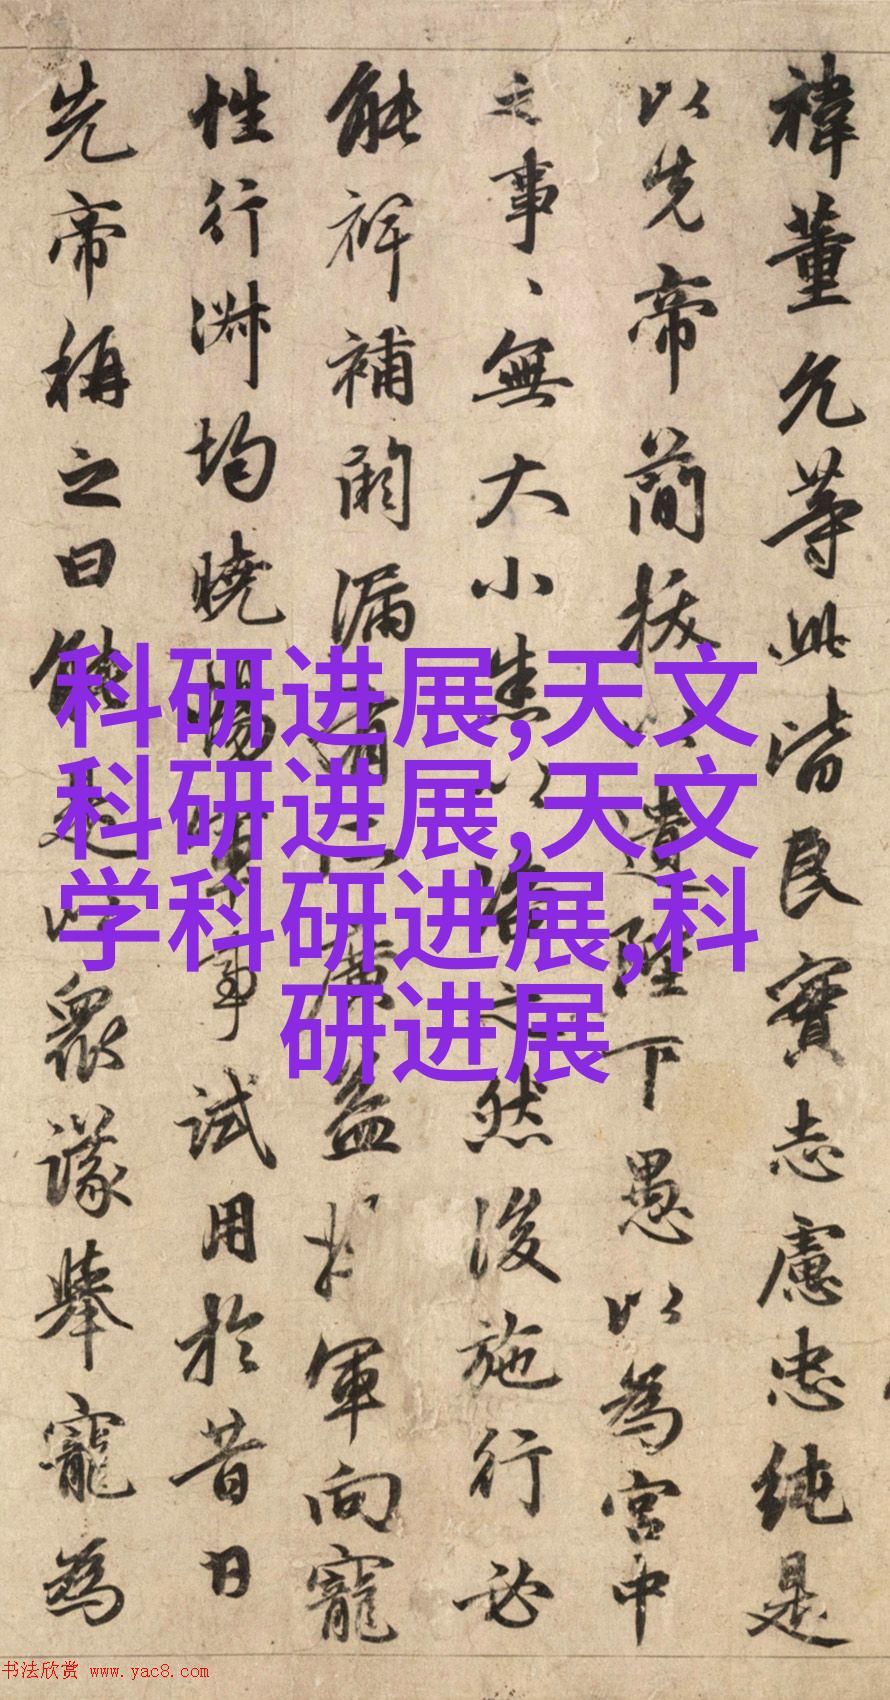 禕董允等此皆良實志慮忠純是
以先帝簡拔以遺陛下愚以為宮中
之事、無大小悉以咨之然後施行必
能裨補闕漏有所廣益將軍向寵
性行淑均曉暢軍事試用於昔日
先帝稱之曰能是以眾議舉寵為
科研进展,天文
科研进展,天文
学科研进展,科
研进展
书法欣赏 www.yac8.com